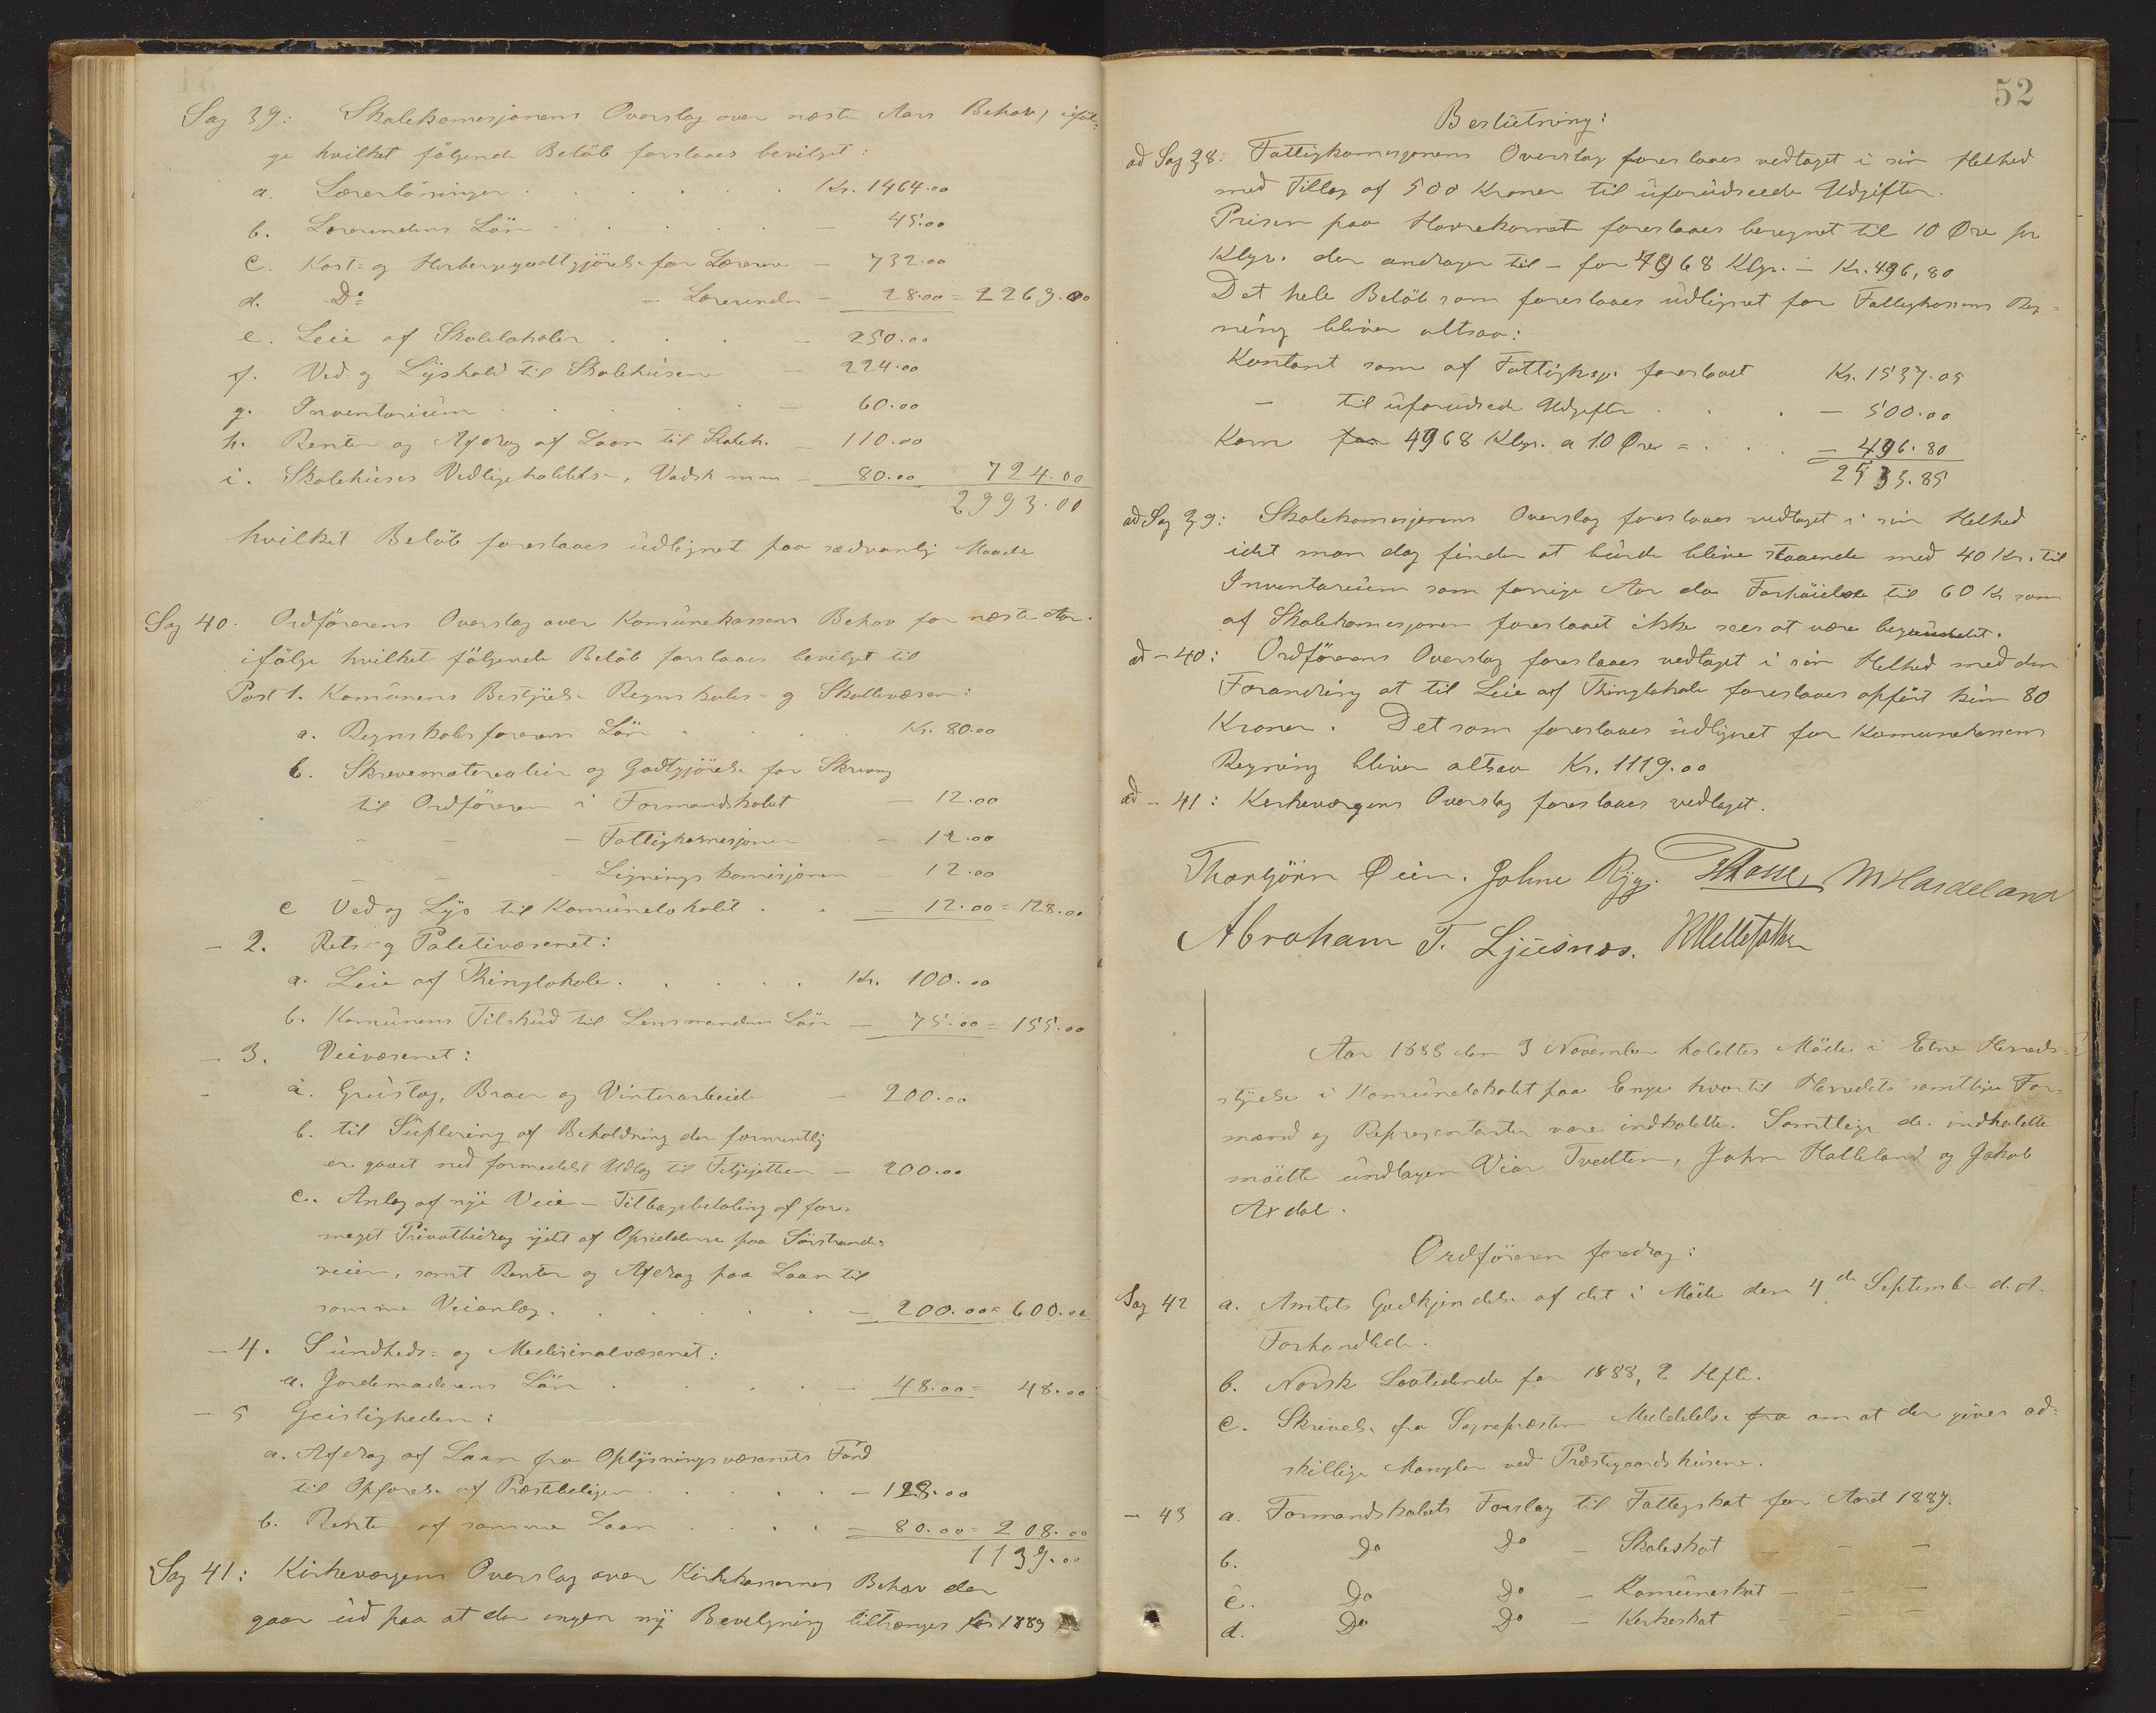 Sag 39: Skolekomisjonens Overslag over næste Aars Behov, iføl-
ge hvilket følgende Beløb foreslaaes bevilget:
a. Lærerlønninger . . . . . . Kr. 1464.00
b. Lærerindens Løn . . . . . — 45.00
c. Kost- og Herbergegodtgjørelse for Lærerne — 732.00
d. Do — Lærerinden — 28.00 = 2269.00
e. Leie af Skolelokaler . . . — 250.00
f. Ved- og Lyshold til Skolehusene — 224.00
g. Inventarium . . . . . — 60.00
h. Renter og Afdrag af Laan til Skoleh. — 110.00
i. Skolehuses Vedligeholdelse, Vadsk m.m. — 80.00 724.00
2993.00
hvilket Beløb foreslaaes udlignet paa sædvanlig Maade
Sag 40. Ordførerens Overslag over Komunekassens Behov for næste Aar.
ifølge hvilket følgende Beløb forslaaes bevilget til
Post 1. Komunens Bestyrelse Regnskabs- og Skattevæsen:
a. Regnskabsførerens Løn . . . . Kr. 80.00
b. Skrevematerealier og Godtgjørelse for Skriving
til Ordføreren i Formandskabet — 12.00
— — — Fattigkomesjonen — 12.00
— — — Ligningskomisjonen — 12.00
c Ved og Lys til Komunelokalet . . — 12.00 = 128.00
— 2. Rets- og Poletivæsenet:
a. Leie af Thinglokale . . . . . Kr. 100.00
b. Komunens Tilskud til Lensmandens Løn — 75.00 = 155.00
— 3. Veivæsenet:
a. Grustag, Broer og Vinterarbeide — 200.00
b. til Suplering af Beholdning der formentlig
er gaaet ned formedelst Udlæg til — 200.00
c. Anlæg af nye Veie — Tilbagebetaling af for-
meget Privatbidrag ydet af Opsidderne paa Sørstrands-
veien, samt Renter og Afdrag paa Laan til
samme Veianlæg . . . . . — 200.00 = 600.00
— 4. Sundheds- og Medisinalvæsenet:
a. Jordemoderens Løn . . . . — 48.00 = 48.00
— 5 Geistligheden:
a. Afdrag af Laan fra Oplysningsvæsenets Fond
til Opførelse af Præsteboligen . . . . — 128.00
b. Renter af samme Laan . . . . — 80.00 = 208.00
1139.00
Sag 41: Kirkeværgens Overslag over Kirkekassernes Behov der
gaar ud paa at der ingen ny Bevelgning tiltrænges for 1889
52
Beslutning:
ad Sag 38: Fattigkomesjonens Overslag foreslaaes vedtaget i sin Helhed
med Tillæg af 500 Kroner til uforudseede Udgifter.
Prisen paa Havrekornet foreslaaes beregnet til 10 Øre pr
Klgr. der andrager til — for 4968 Klgr. — Kr. 496,80
Det hele Beløb som foreslaaes udlignet for Fattigkassens Reg-
ning bliver altsaa:
Kontant som af Fattigkom. foreslaaet Kr. 1537.05
— til uforudsede Udgifter . . . — 500.00
Korn for 4968 Klgr. a 10 Øre = . . . — 496.80
2533.85
ad Sag 39: Skolekomesjonens Overslag foreslaaes vedtaget i sin Helhed
idet man dog finder at burde blive staaende med 40 Kr. til
Inventarium som forrige Aar da Forhøielse til 60 Kr som
af Skolekomesjonen foreslaaet ikke sees at være begrundet.
ad — 40: Ordførerens Overslag foreslaaes vedtaget i sin Helhed med den
Forandring at til Leie af Thinglokale foreslaaes opført kun 80
Kroner. Det som foreslaaes udlignet for Komunekassens
Regning bliver altsaa Kr. 1119.00
ad — 41: Kerkeværgens Overslag foreslaaes vedtaget.
Thorbjørn Øien. Johne Rygg. M Hardeland
Abraham T. Ljusnes.
Aar 1888 den 3 November holdtes Møde i Etne Herreds-
styrelse i Komunelokalet paa Enge hvortil Herredets samtlige For-
mænd og Representanter vare indkaldte. Samtlige de indkaldte
mødte undtagen Viar Tvedten, John Halleland og Jakob
Axdal.
Ordføreren foredrog:
Sag 42 a. Amtets Godkjendelse af det i Møde den 4de September d.A.
Forhandlede.
b. Norsk Lovtidende for 1888, 2 Hefte.
c. Skrivelse fra Sognepræsten Meddelelse fra om at der gives ad-
skillige Mangler ved Præstegaardshusene.
— 43 a. Formandskabets Forslag til Fattigskat for Aaret 1889.
b. Do Do — Skoleskat — — —
c. Do Do — Komuneskat — — —
d. Do Do — Kerkeskat — —